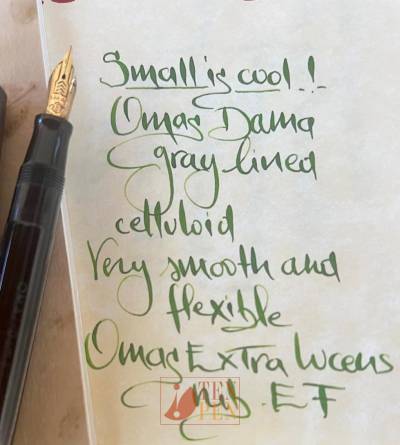 Small is cool!
Omas Dama
gray lined
celluloid
Very smooth and
flexible
Omas Extra Lucens
nib. EF
TEN
PEN